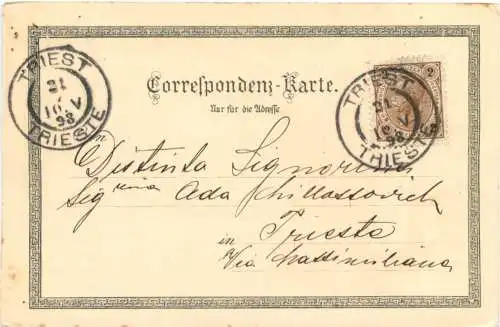 TRIEST
21
10 V
98
TRIESTE
Correspondenz-Karte.
Nur für die Adresse.
TRIEST
21
10 V
98
TRIESTE
2
An
Distinta Signorina
Sigrina Ada
in Trieste
Via Massimiliana